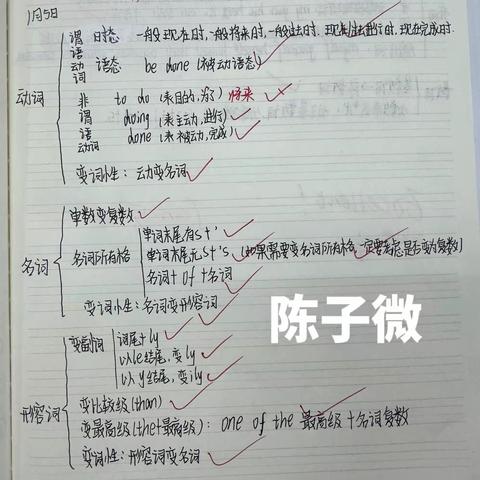 1月5日
谓语动词 时态 一般现在时,一般将来时,一般过去时,现在进行时,现在完成时.
语态 be done (被动语态)
动词
非谓语动词 to do (表目的,为了) 将来
doing (表主动,进行)
done (表被动,完成)
变词性:动变名词
单数变复数
单词末尾有s+'
名词 名词所有格 单词末尾无s+'s (如果需要变名词所有格,一定要考虑是否变为复数)
名词+of+名词
变词性:名词变形容词
陈子微
词尾+ly
变副词 以le结尾,变ly
以y结尾,变ily
形容词 变比较级(than)
变最高级(the+最高级): one of the 最高级+名词复数
变词性:形容词变名词